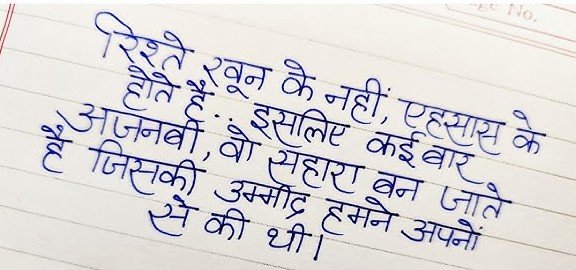 Page No.
रिश्ते खून के नहीं, एहसास के
होते हैं.. इसलिए कई बार
अजनबी, वो सहारा बन जाते
है जिसकी उम्मीद हमने अपनों
से की थी।